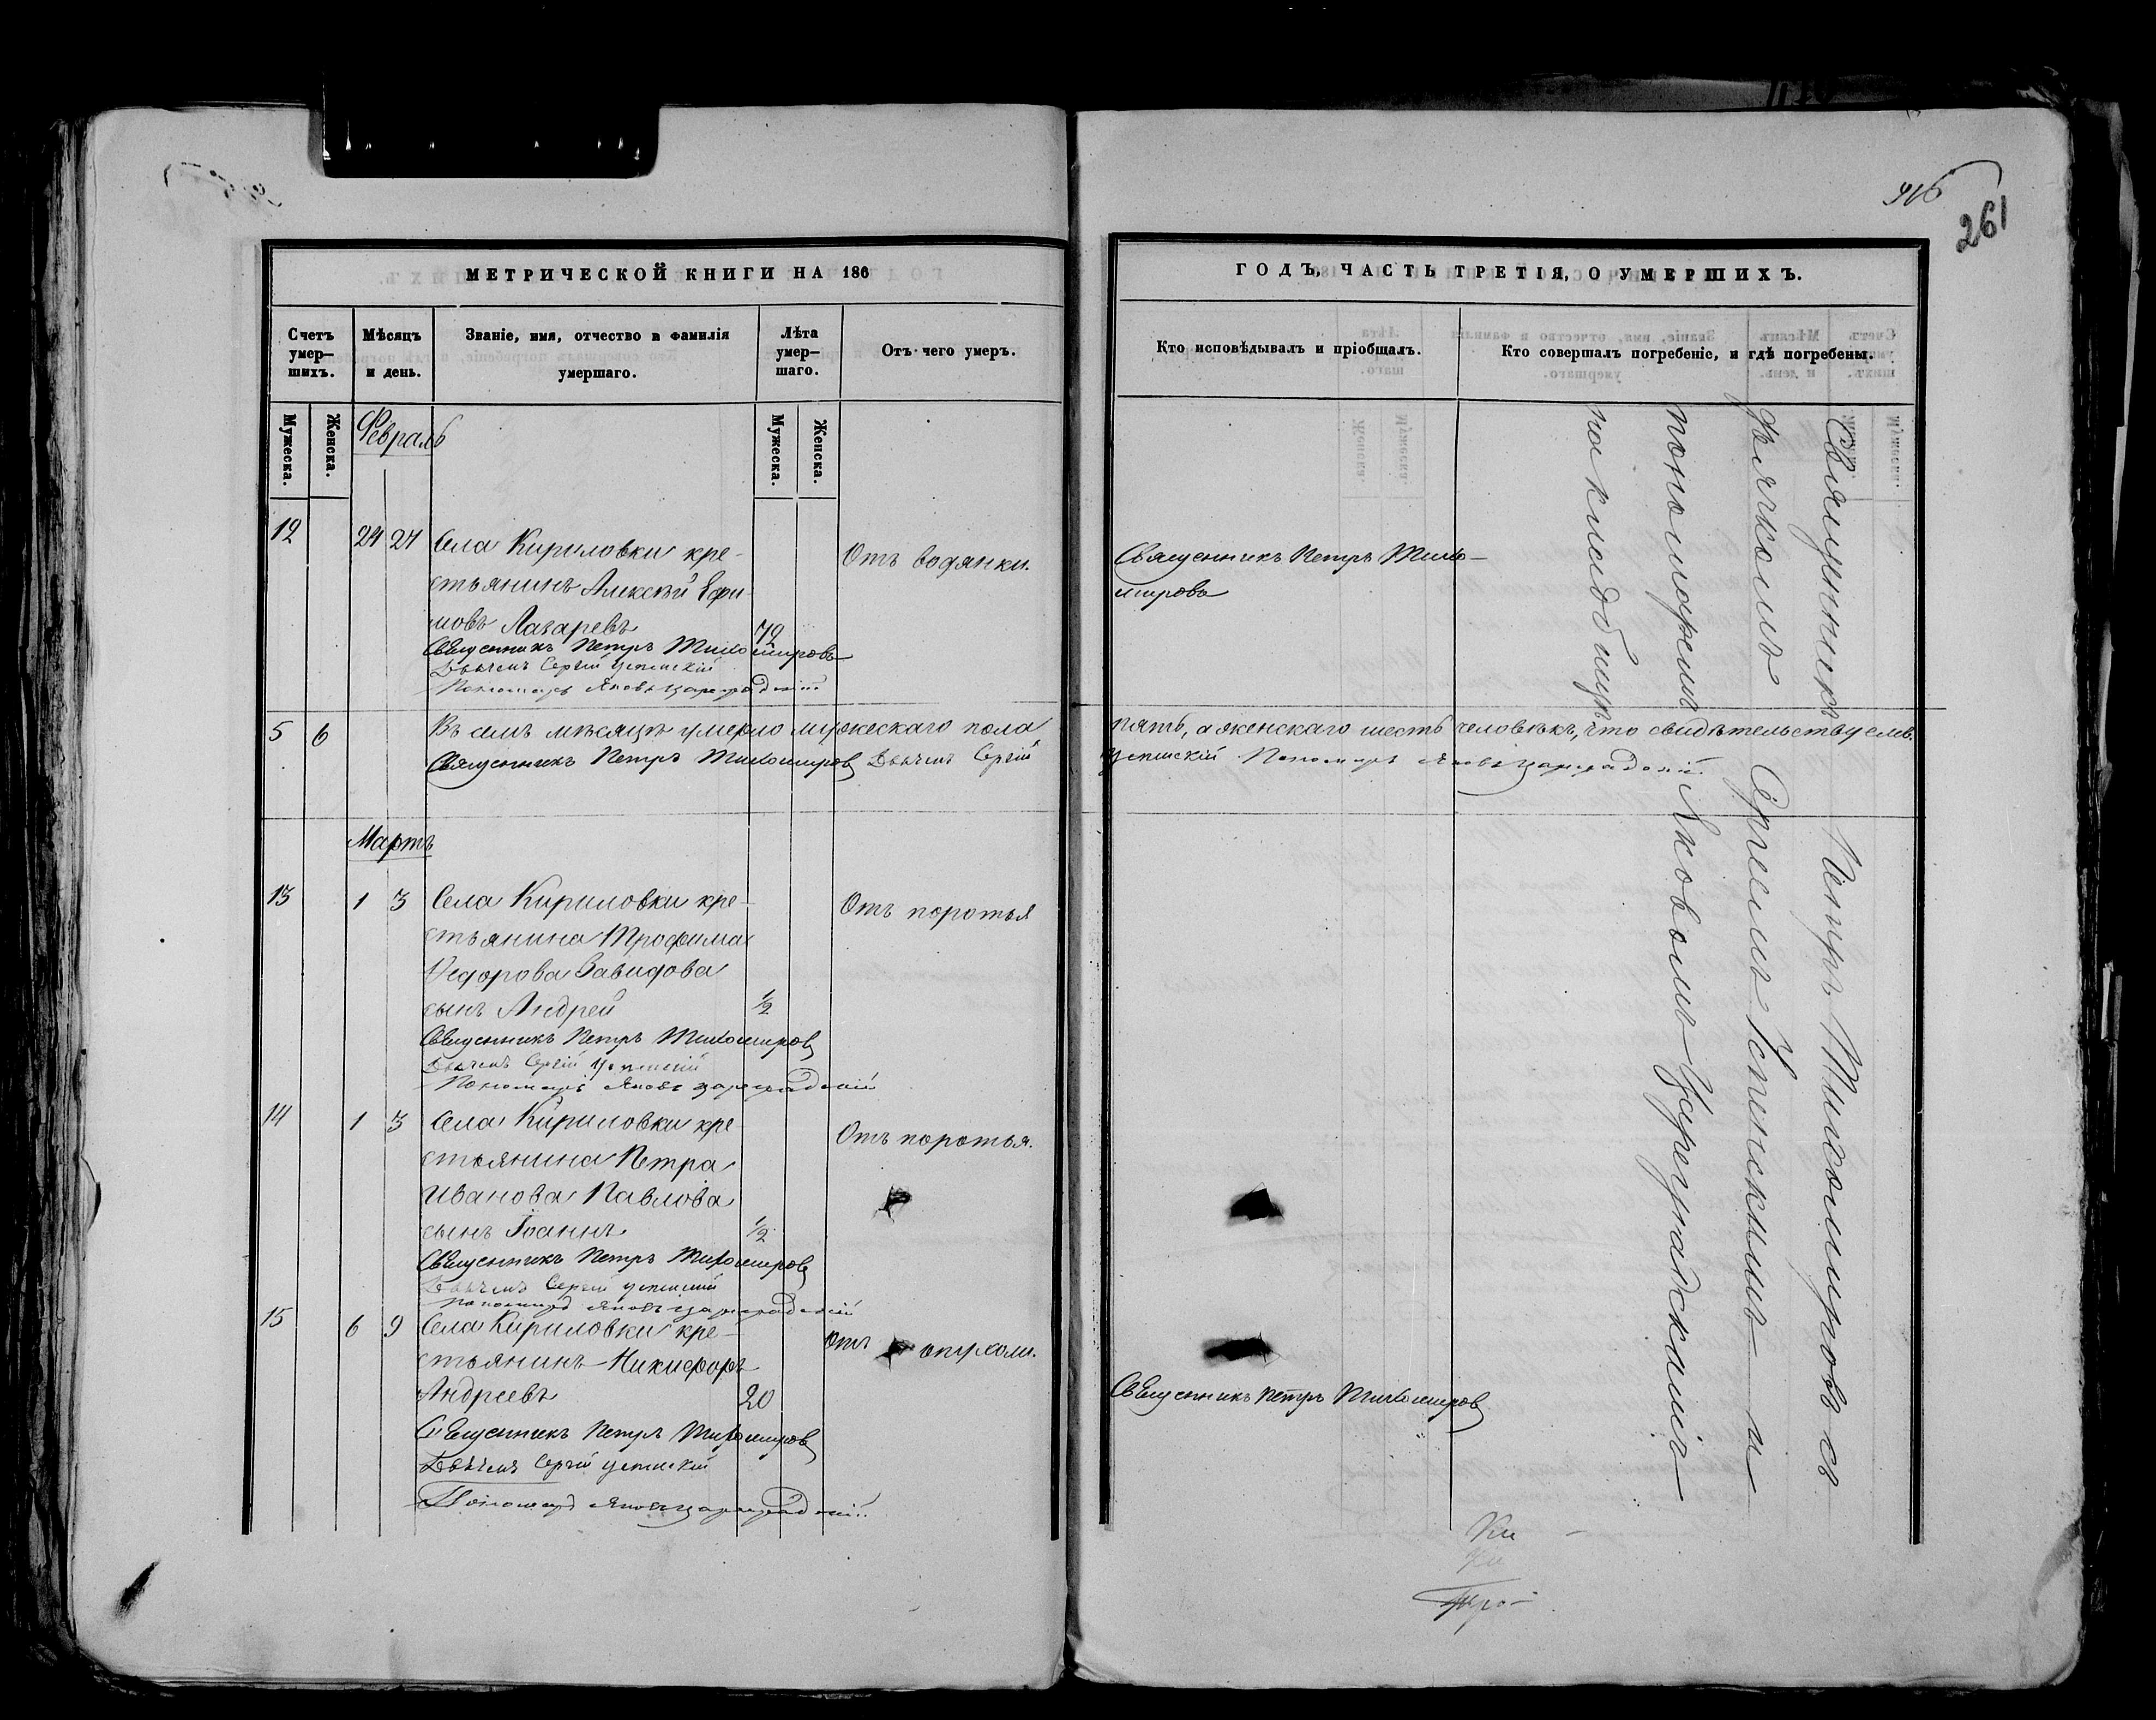 916
261
МЕТРИЧЕСКОЙ КНИГИ НА 186
ГОДЪ, ЧАСТЬ ТРЕТІЯ, О УМЕРШИХЪ.
Счетъ умер-
шихъ.
Мѣсяцъ
и день.
Званіе, имя, отчество и фамилія
умершаго.
Лѣта
умер-
шаго.
Отъ чего умеръ.
Кто исповѣдывалъ и пріобщалъ.
Кто совершалъ погребеніе, и гдѣ погребены.
Мужеска.
Женска.
Февраль
Мужеска.
Женска.
12 24 27 Села Кириловки кре-
стьянинъ Алексѣй Ефи-
мовъ Лазаревъ 72
Отъ водянки.
Священникъ Петръ Тихо-
мировъ
Священникъ Петръ Тихомировъ
Дьячекъ Сергій Успенскій
Пономарь Яковъ Цареградскій
5 6 Въ семъ мѣсяцѣ умерло мужескаго пола пять, а женскаго шесть человѣкъ, что свидѣтельствуемъ.
Священникъ Петръ Тихомировъ Дьячекъ Сергій Успенскій Пономарь Яковъ Цареградскій
Мартъ
13 1 3 Села Кириловки кре-
стьянина Трофима
Ѳедорова Завидова
сынъ Андрей 1/2
Отъ поротья
Священникъ Петръ Тихомировъ
Дьячекъ Сергій Успенскій
Пономарь Яковъ Цареградскій
14 1 3 Села Кириловки кре
стьянина Петра
Иванова Павлова
сынъ Іоаннъ 1/2
Отъ поротья.
Священникъ Петръ Тихомировъ
Дьячекъ Сергій Успенскій
Пономарь Яковъ Цареградскій
15 6 9 Села Кириловки кре-
стьянинъ Никифоръ
Андреевъ 20
Отъ опухоли.
Священникъ Петръ Тихомировъ
Священникъ Петръ Тихомировъ
Дьячекъ Сергій Успенскій
Пономарь Яковъ Цареградскій.
Священникъ Петръ Тихомировъ съ
дьячкомъ Сергеемъ Успенскимъ и
пономаремъ Яковомъ Цареградскимъ
на кладбищѣ
Ки
Ки
Тро-